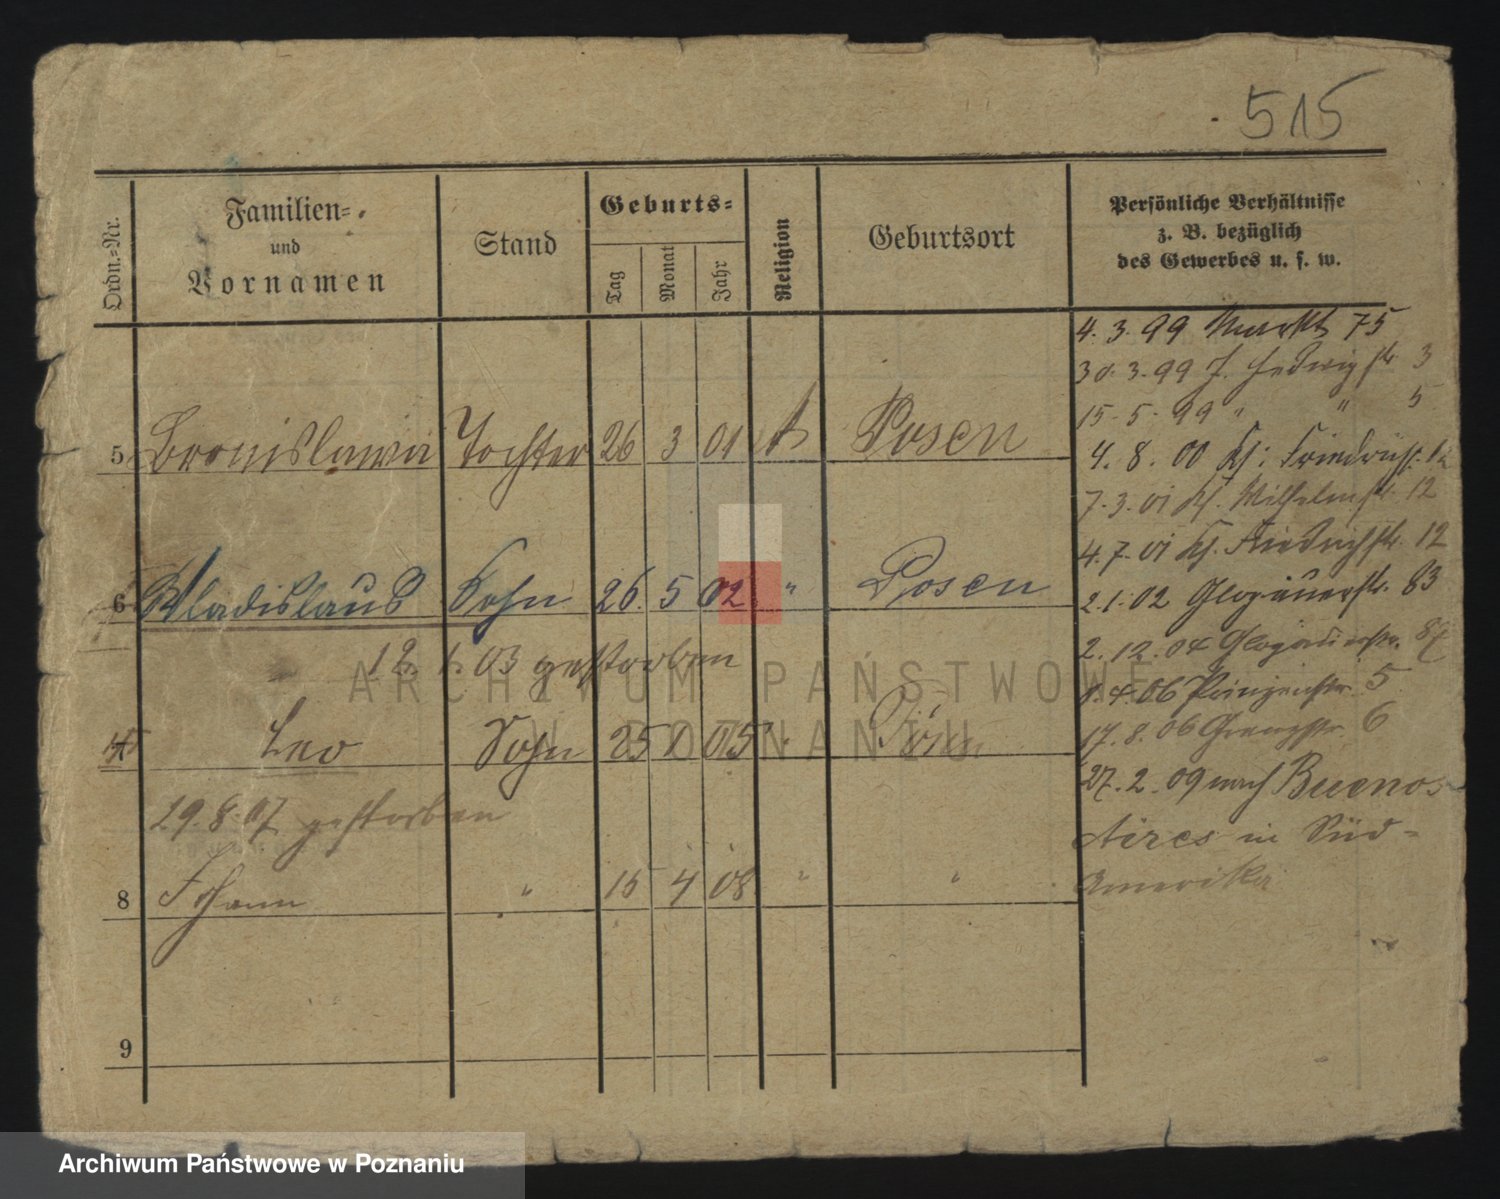 515
Ordn.-Nr.
Familien-
und
Vornamen
Stand
Geburts-
Tag
Monat
Jahr
Religion
Geburtsort
Persönliche Verhältnisse
z. B. bezüglich
des Gewerbes u. s. w.
4. 3. 99 Markt 75
30. 3. 99 Hedwigstr 3
15. 5. 99 " " 5
5 Bronislawa Tochter 26 3 01 Posen
4. 8. 00 Kl: Friedrichstr. 12
7. 3. 01 Kl. Wilhelmstr. 12
4. 7. 01 Kl. Friedrichstr. 12
6 Wladislaus Sohn 26. 5 02 " Posen
2. 1. 02 Glogauerstr. 83
12. 1. 03 gestorben
2. 12. 04 Glogauerstr.
4. 06 Prinzenstr. 5
Leo Sohn 25 05
17. 8. 06 Grenzstr. 6
27. 2. 09 nach Buenos
29. 8. 07 gestorben
Aires in Süd-
8 Johann " 15 4 08 " "
Amerika
9
ARCHIWUM PAŃSTWOWE
W POZNANIU
Archiwum Państwowe w Poznaniu